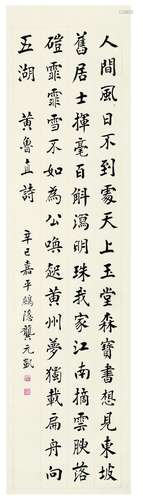 人間風日不到處天上玉堂森寶書想見東坡
舊居士揮毫百斛瀉明珠我家江南摘雲腴落
磑霏霏雪不如為公喚起黃州夢獨載扁舟向
五湖 黃魯直詩
辛巳嘉平鷗隱龔元凱